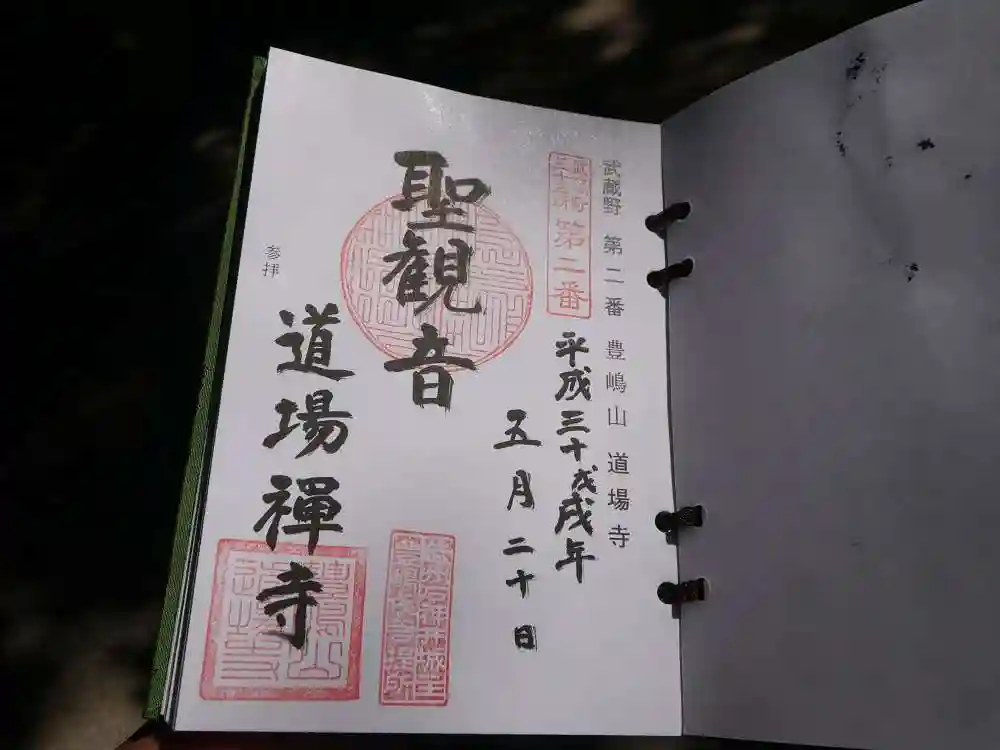 武蔵野 第二番 豊嶋山 道場寺
第二番
平成三十戊戌年
五月二十日
聖観音
参拝
道場禅寺